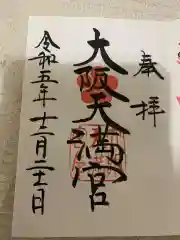 奉拝
大阪天満宮
令和五年十二月二十二日